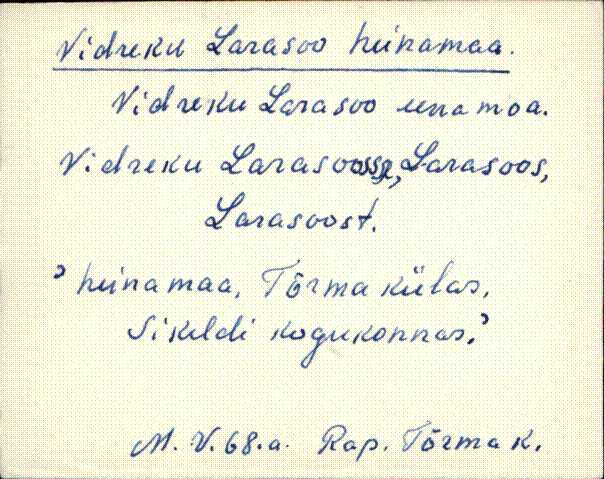 Vidreku Larasoo heinamaa.
Vidreku Larasoo einamoa.
Vidreku Larasoosse, Larasoos,
Larasoost.
’heinamaa, Tõrma külas,
Sikeldi kogukonnas.’
M. V. 68.a. Rap. Tõrma k.